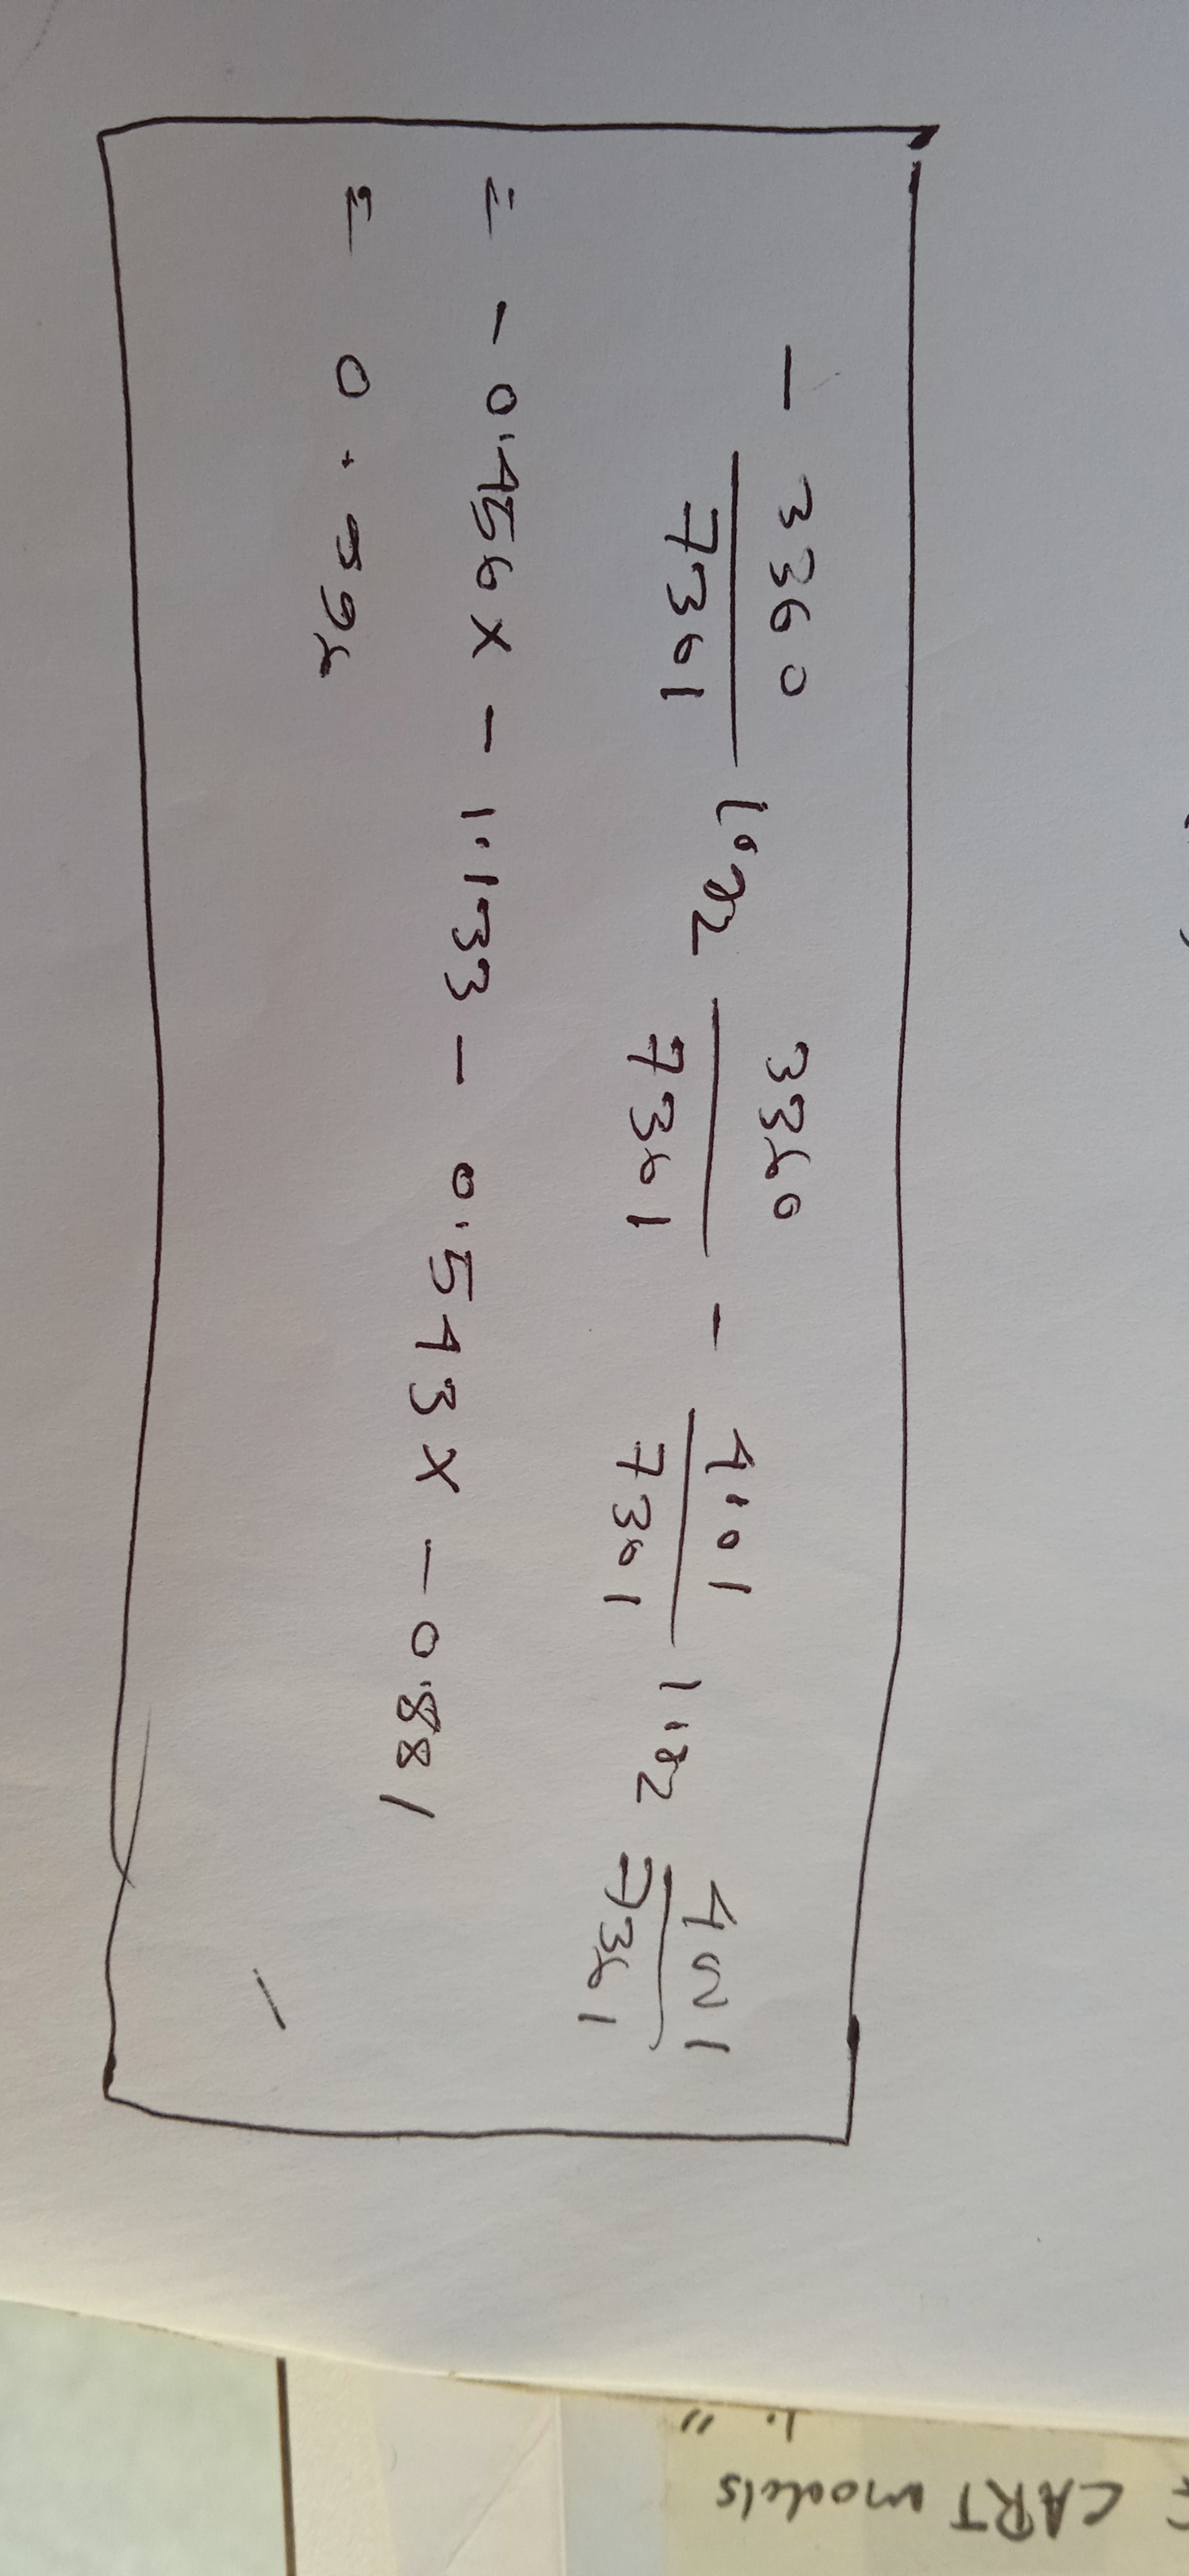 - 3360/7361 log2 3360/7361 - 4001/7361 log2 4001/7361
= - 0.456 x - 1.133 - 0.543 x - 0.881
= 0.996
CART models